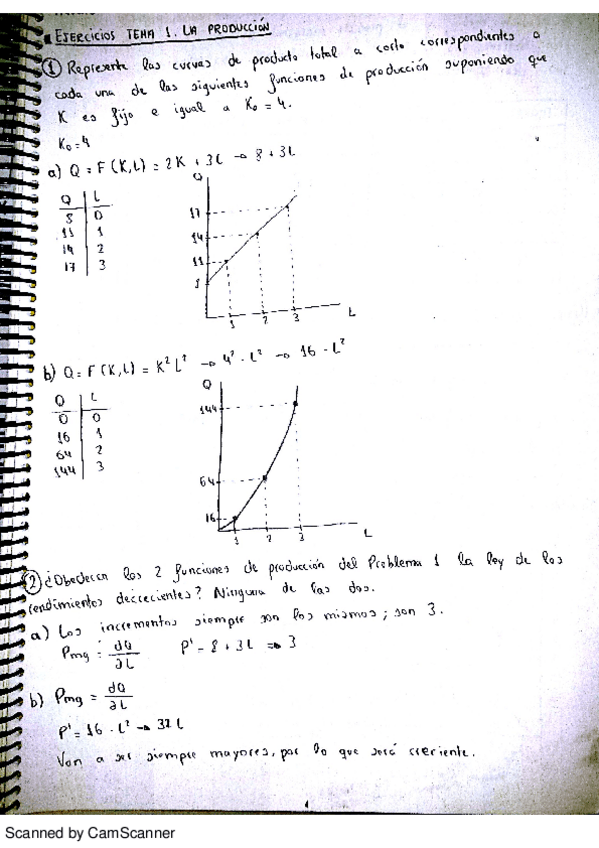 EJERCICIOS TEMA 1. LA PRODUCCIÓN
① Represente las curvas de producto total a corto correspondientes a
cada una de las siguientes funciones de producción suponiendo que
K es fijo e igual a K₀ = 4.
K₀ = 4
a) Q = F(K,L) = 2K + 3L → 8 + 3L
Q L
8 0
11 1
14 2
17 3
Q
17
14
11
8
1 2 3 L
b) Q = F(K,L) = K² L² → 4² · L² → 16 · L²
Q L
0 0
16 1
64 2
144 3
Q
144
64
16
1 2 3 L
② ¿Obedecen los 2 funciones de producción del Problema 1 la ley de los
rendimientos decrecientes? Ninguna de las dos.
a) Los incrementos siempre son los mismos; son 3.
Pmg = dQ/∂L P' = 8 + 3L ⇒ 3
b) Pmg = dQ/∂L
P' = 16 · L² → 32 L
Van a ser siempre mayores, por lo que será creciente.
1
Scanned by CamScanner